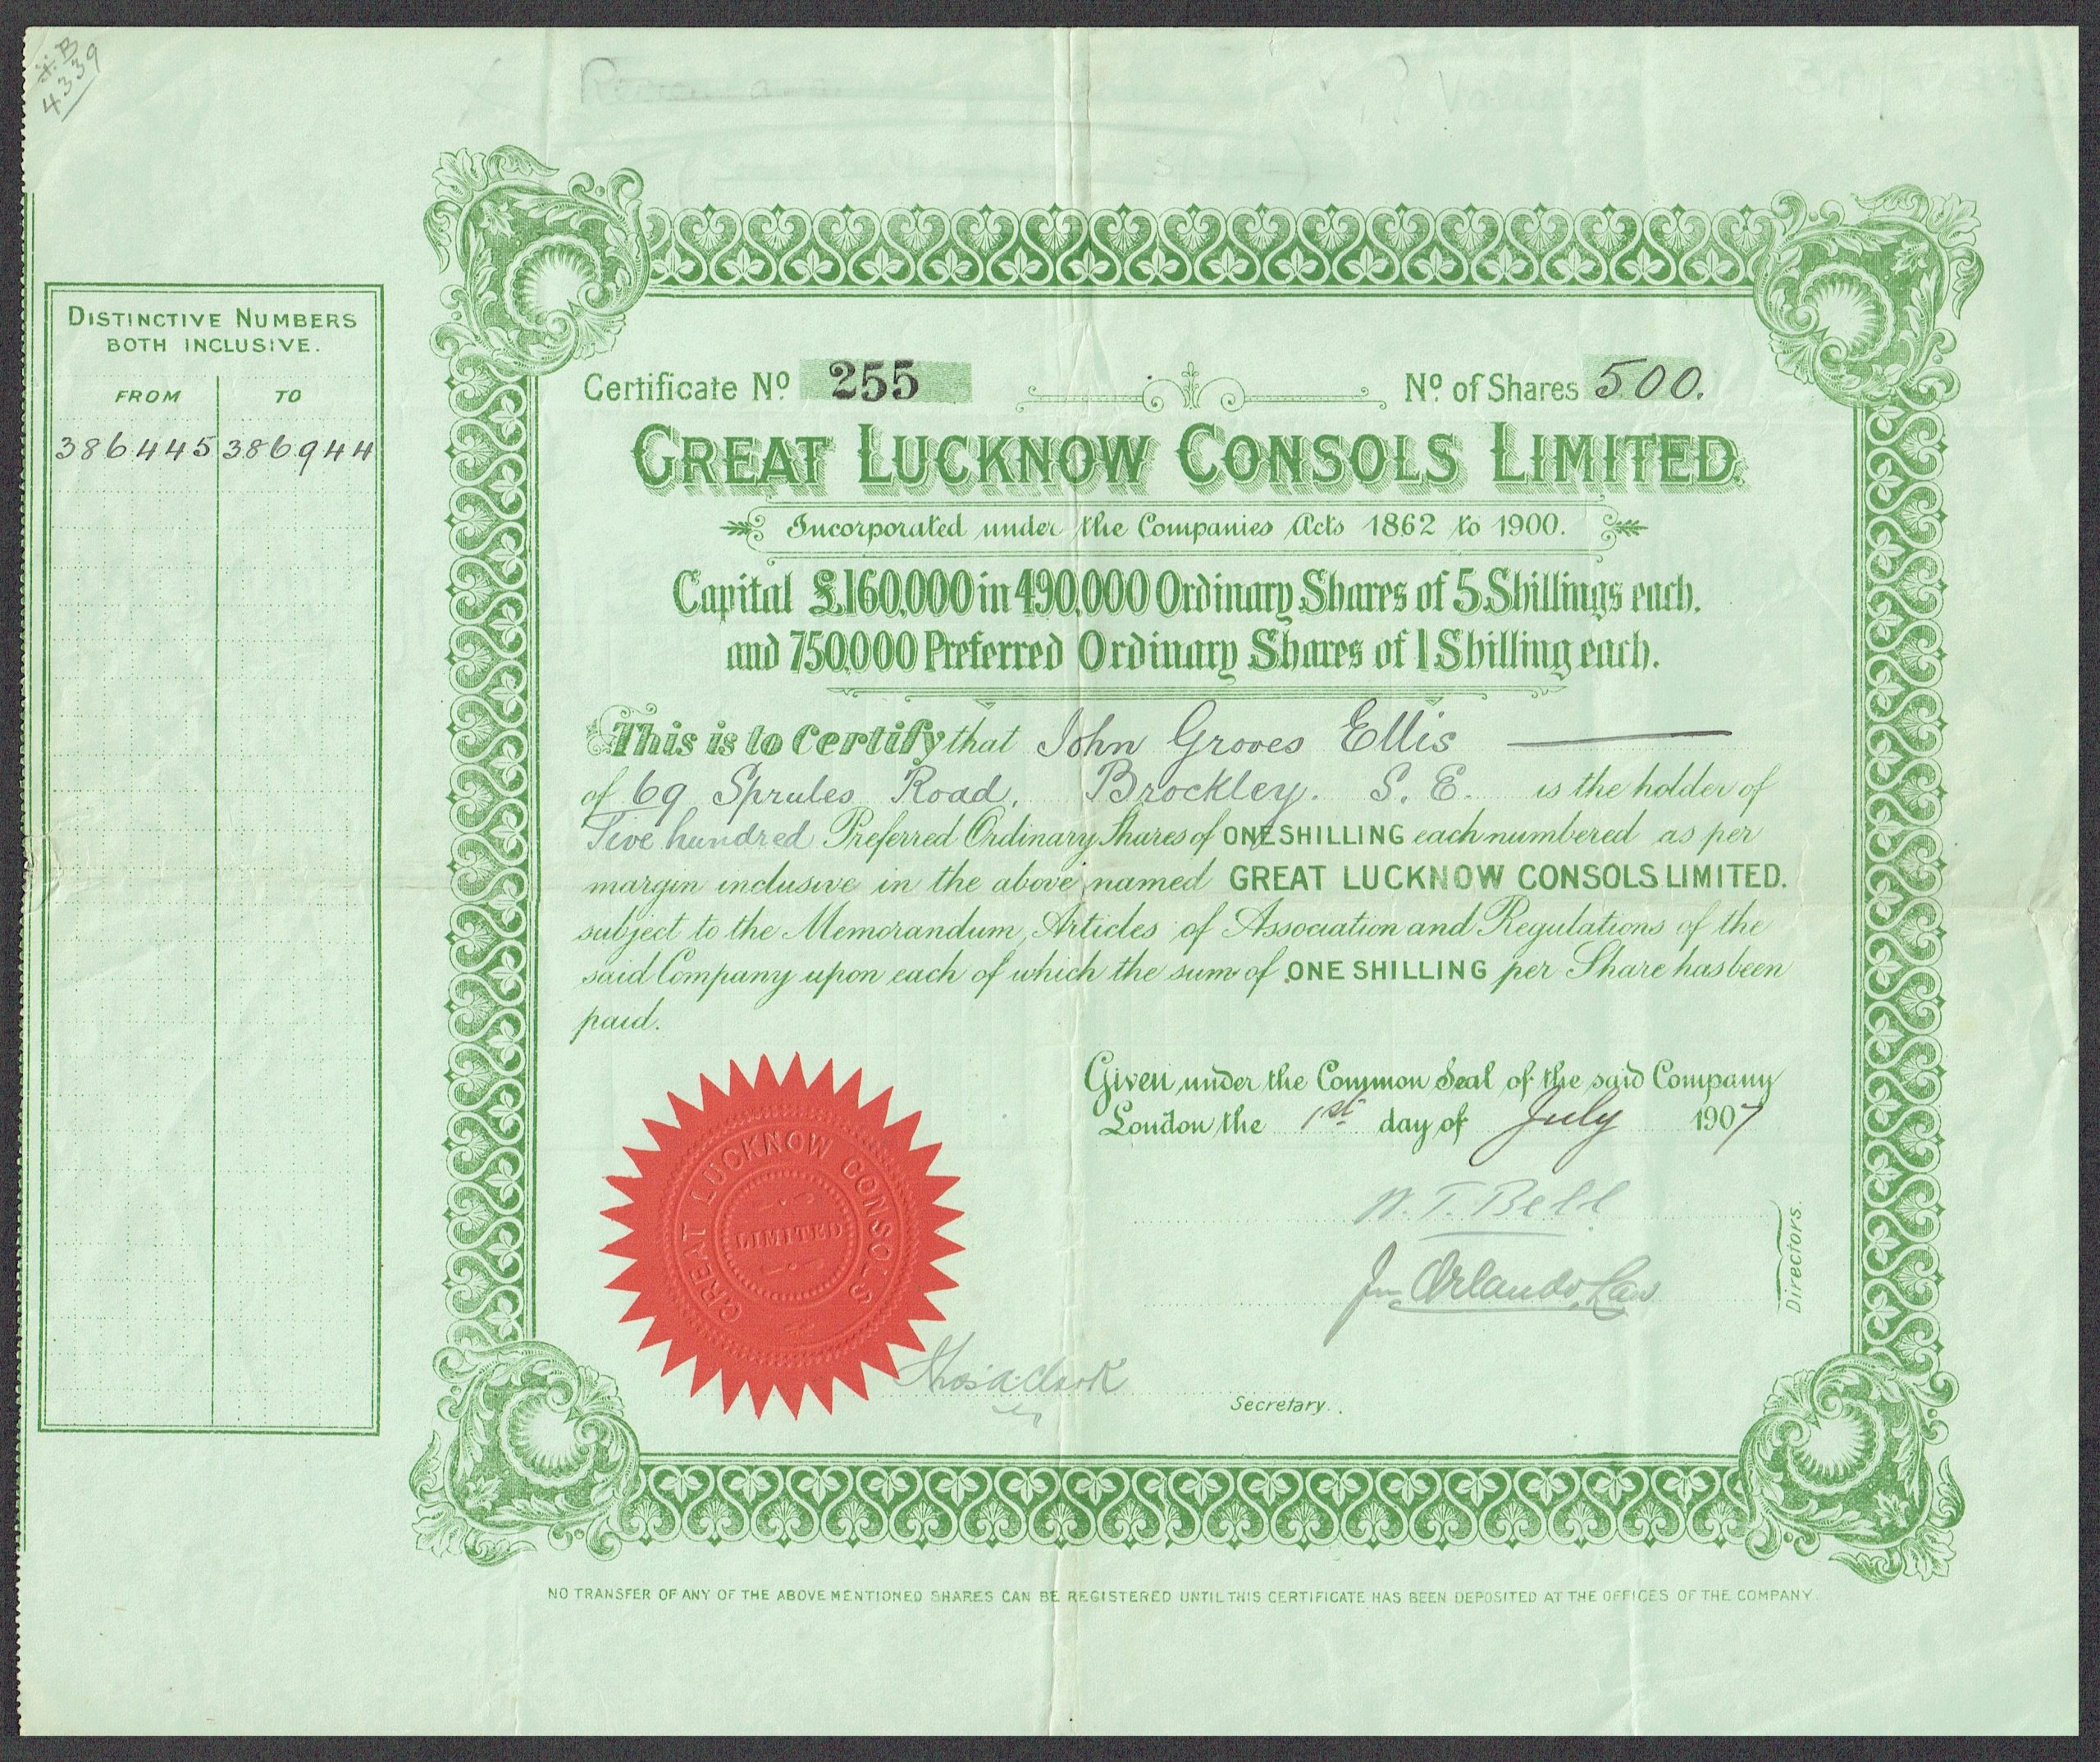 4339
DISTINCTIVE NUMBERS
BOTH INCLUSIVE.
FROM TO
386445 386944
Certificate Nº 255 Nº of Shares 500.
GREAT LUCKNOW CONSOLS LIMITED.
Incorporated under the Companies Acts 1862 to 1900.
Capital £160,000 in 490,000 Ordinary Shares of 5 Shillings each.
and 750,000 Preferred Ordinary Shares of 1 Shilling each.
This is to Certify that John Groves Ellis
of 69 Sprules Road, Brockley. S. E. is the holder of
Five hundred Preferred Ordinary Shares of ONE SHILLING each numbered as per
margin inclusive in the above named GREAT LUCKNOW CONSOLS LIMITED.
subject to the Memorandum, Articles of Association and Regulations of the
said Company upon each of which the sum of ONE SHILLING per Share has been
paid.
Given under the Common Seal of the said Company
London, the 1st day of July 1907
W. T. Bell
Jn Orlando Law
Directors.
GREAT LUCKNOW CONSOLS
LIMITED
Thos. A. Clark
Secretary.
NO TRANSFER OF ANY OF THE ABOVE MENTIONED SHARES CAN BE REGISTERED UNTIL THIS CERTIFICATE HAS BEEN DEPOSITED AT THE OFFICES OF THE COMPANY.